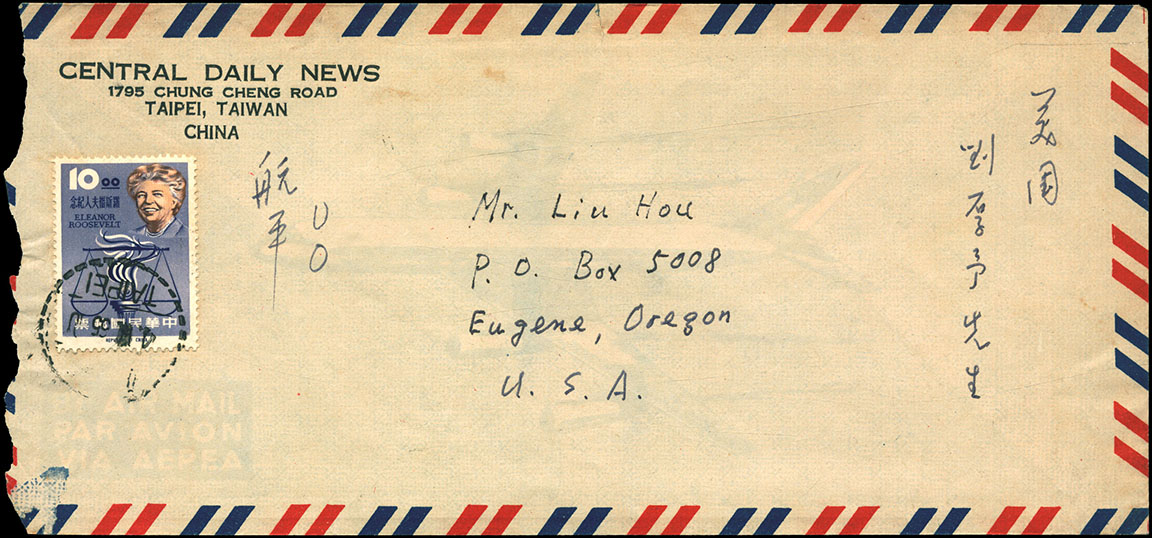 CENTRAL DAILY NEWS
1795 CHUNG CHENG ROAD
TAIPEI, TAIWAN
CHINA
10.00
羅斯福夫人紀念
ELEANOR
ROOSEVELT
中華民國郵票
REPUBLIC OF CHINA
TAIPEI 7
航平
U O
Mr. Liu Hou
P. O. Box 5008
Eugene, Oregon
U. S. A.
美国
刘厚予先生
AIR MAIL
PAR AVION
VIA AEREA